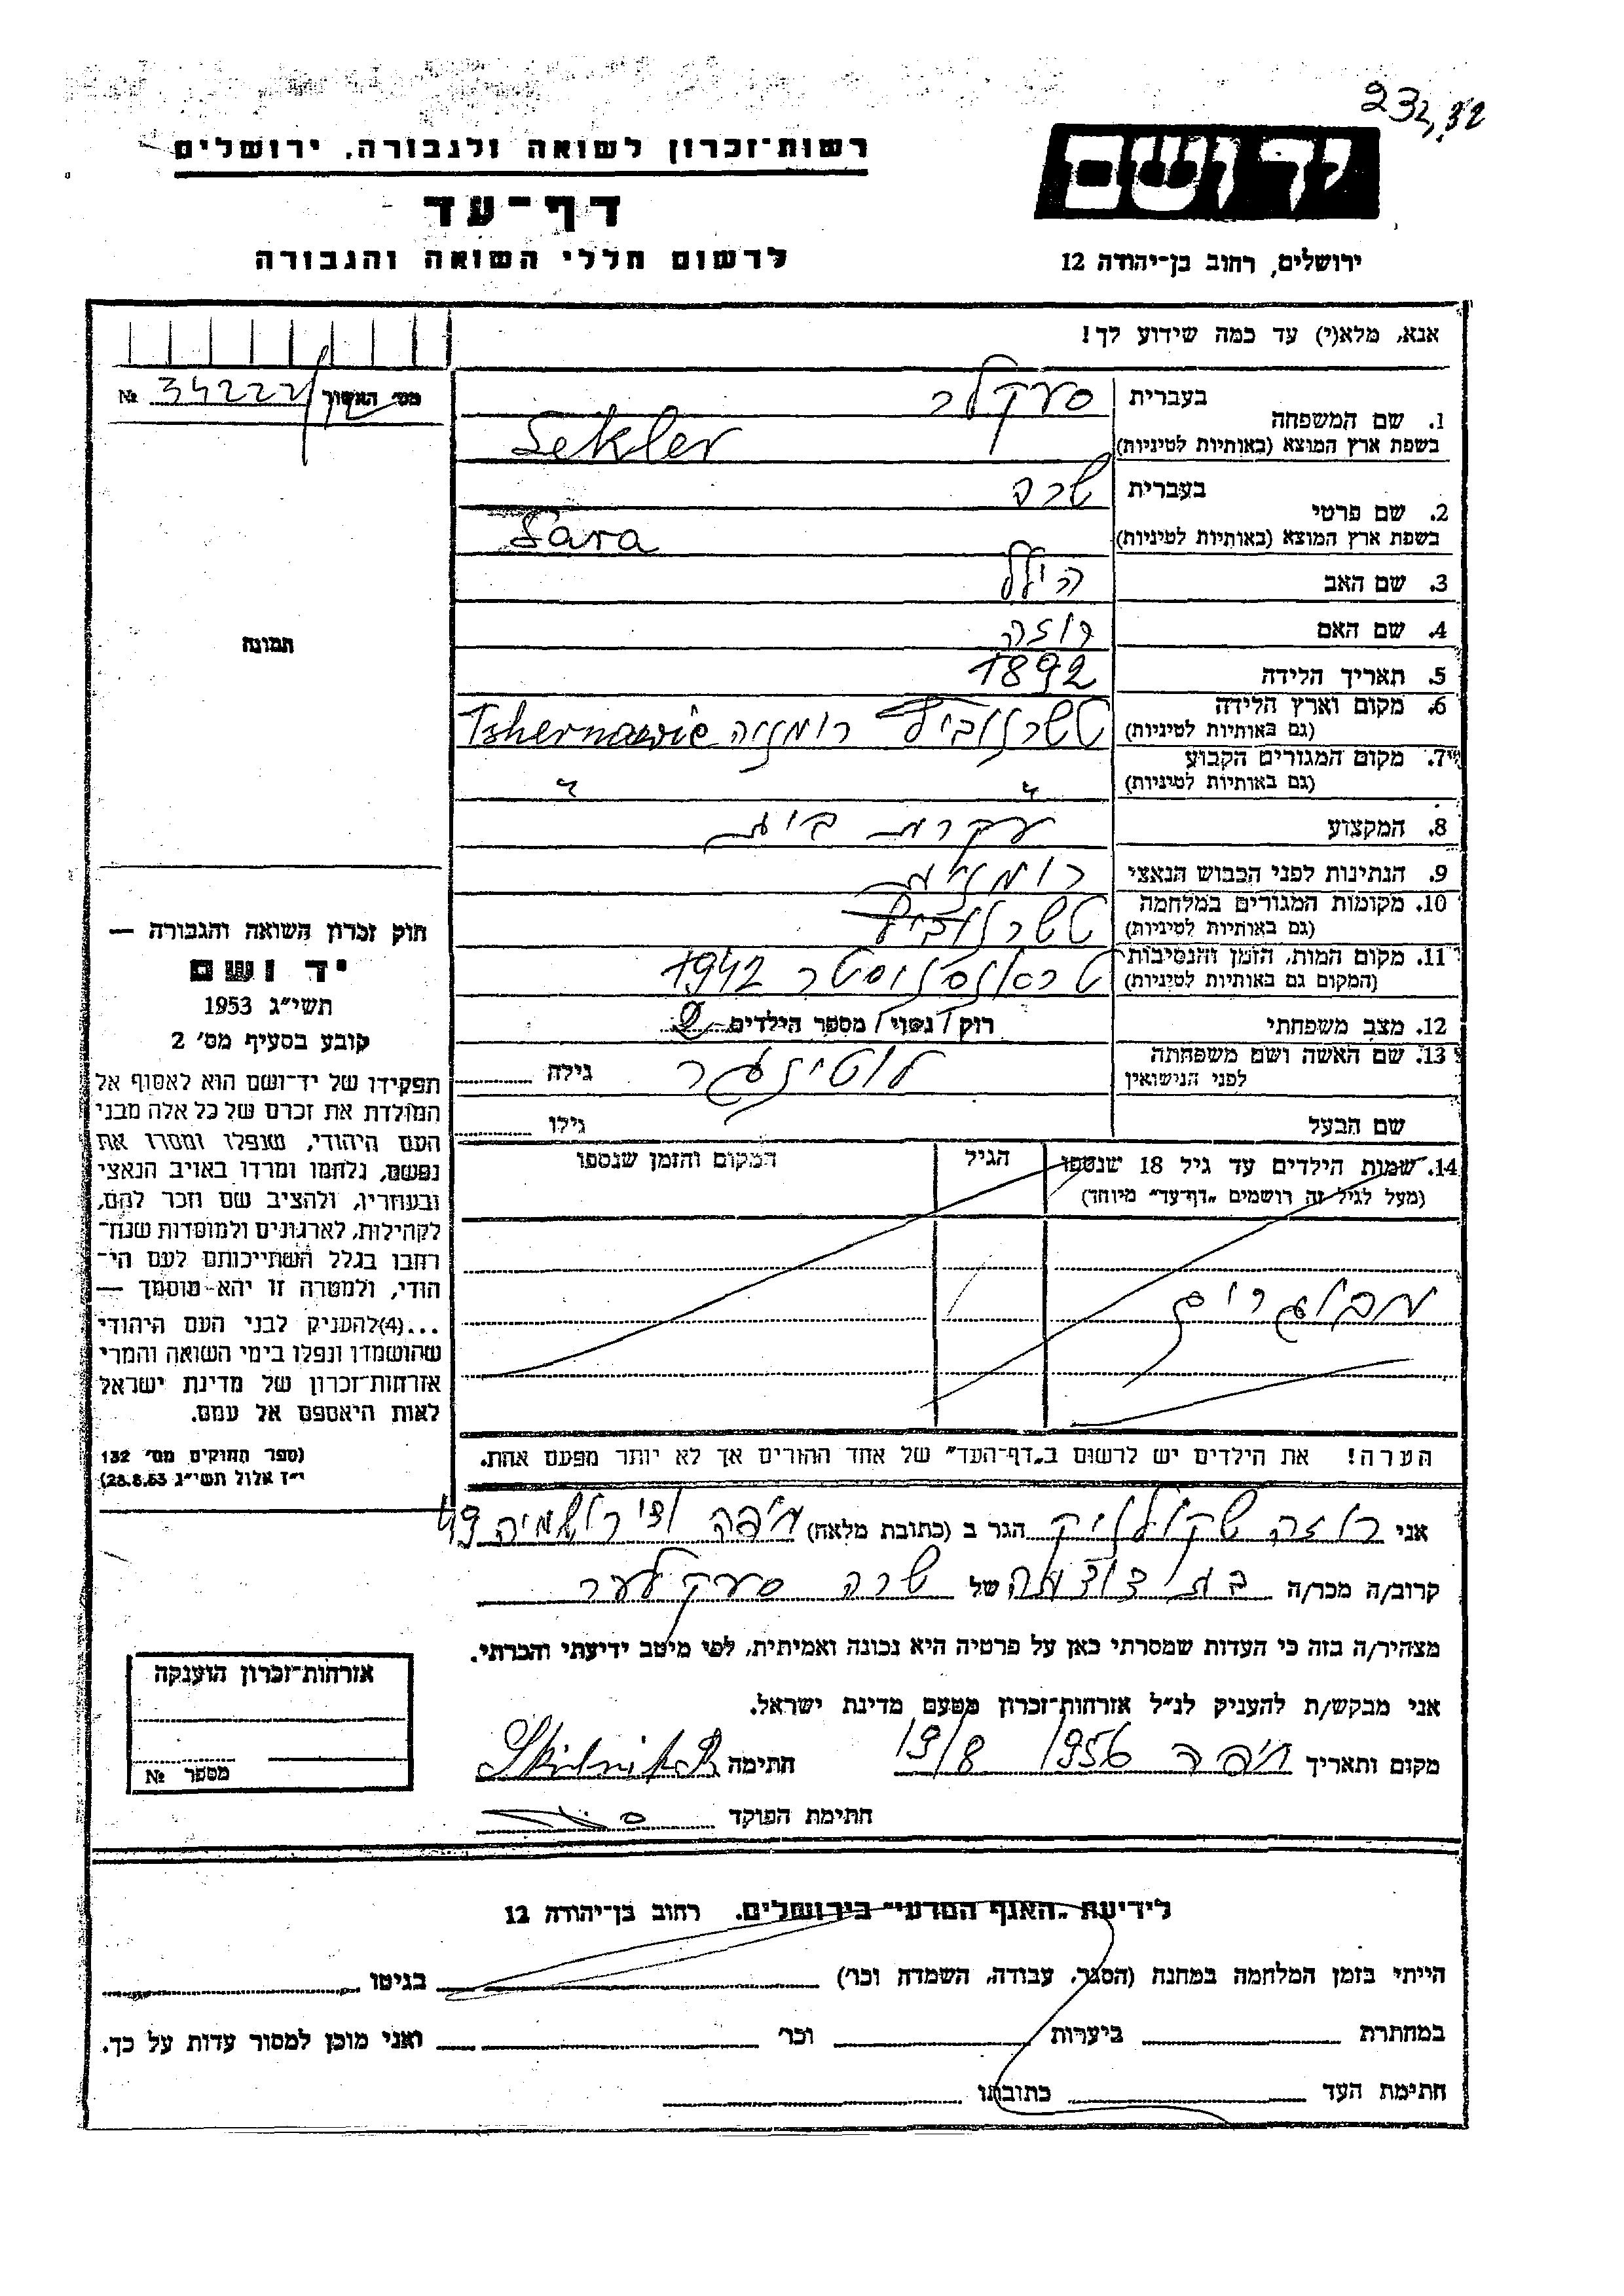 232,32
יד ושם
ירושלים, רחוב בן־יהודה 12
רשות־זכרון לשואה ולגבורה, ירושלים
דף־עד
לרשום חללי השואה והגבורה
אנא, מלא(י) עד כמה שידוע לך!
מס' האשור 34222 №
1. שם המשפחה
בעברית סעקלר
בשפת ארץ המוצא (באותיות לטיניות) Sekler
2. שם פרטי
בעברית שרה
בשפת ארץ המוצא (באותיות לטיניות) Sara
3. שם האב הילל
4. שם האם רוזה
תמונה
5. תאריך הלידה 1892
6. מקום וארץ הלידה
(גם באותיות לטיניות) טשרנוביץ רומניה Tshernowic
7. מקום המגורים הקבוע
(גם באותיות לטיניות) " "
8. המקצוע עקרת בית
9. הנתינות לפני הכבוש הנאצי רומנית
10. מקומות המגורים במלחמה
(גם באותיות לטיניות) טשרנוביץ
11. מקום המות, הזמן והנסיבות
(המקום גם באותיות לטיניות) טראנסניסטר 1942
12. מצב משפחתי רוק/נשוי/ מספר הילדים 2
13. שם האשה ושם משפחתה
לפני הנישואין גילה
שם הבעל גילו
14. שמות הילדים עד גיל 18 שנספו
(מעל לגיל זה רושמים "דף־עד" מיוחד)
הגיל
המקום והזמן שנספו
מבוגרים
הערה! את הילדים יש לרשום ב"דף־העד" של אחד ההורים אך לא יותר מפעם אחת.
חוק זכרון השואה והגבורה —
יד ושם
תשי"ג 1953
קובע בסעיף מס' 2
תפקידו של יד־ושם הוא לאסוף אל
המולדת את זכרם של כל אלה מבני
העם היהודי, שנפלו ומסרו את
נפשם, נלחמו ומרדו באויב הנאצי
ובעוזריו, ולהציב שם וזכר להם,
לקהילות, לארגונים ולמוסדות שנח־
רבו בגלל השתייכותם לעם הי־
הודי, ולמטרה זו יהא מוסמך —
...(4)להעניק לבני העם היהודי
שהושמדו ונפלו בימי השואה והמרי
אזרחות־זכרון של מדינת ישראל
לאות היאספם אל עמם.
(ספר החוקים מס' 132
י"ז אלול תשי"ג 28.8.53)
אני רוזה שקולניק הגר ב (כתובת מלאה) חיפה ואדי רושמיה 49
קרוב/ה מכר/ה בת דודתה של שרה סעקלער
מצהיר/ה בזה כי העדות שמסרתי כאן על פרטיה היא נכונה ואמיתית, לפי מיטב ידיעתי והכרתי.
אני מבקש/ת להעניק לנ"ל אזרחות־זכרון מטעם מדינת ישראל.
מקום ותאריך חיפה 19/8/1956 חתימה Skilnik R
חתימת הפוקד
אזרחות־זכרון הוענקה
מספר №
לידיעת "האגף המדעי" בירושלים. רחוב בן־יהודה 12
הייתי בזמן המלחמה במחנה (הסגר, עבודה, השמדה וכו') בגיטו
במחתרת ביערות וכו' ואני מוכן למסור עדות על כך.
חתימת העד כתובתו